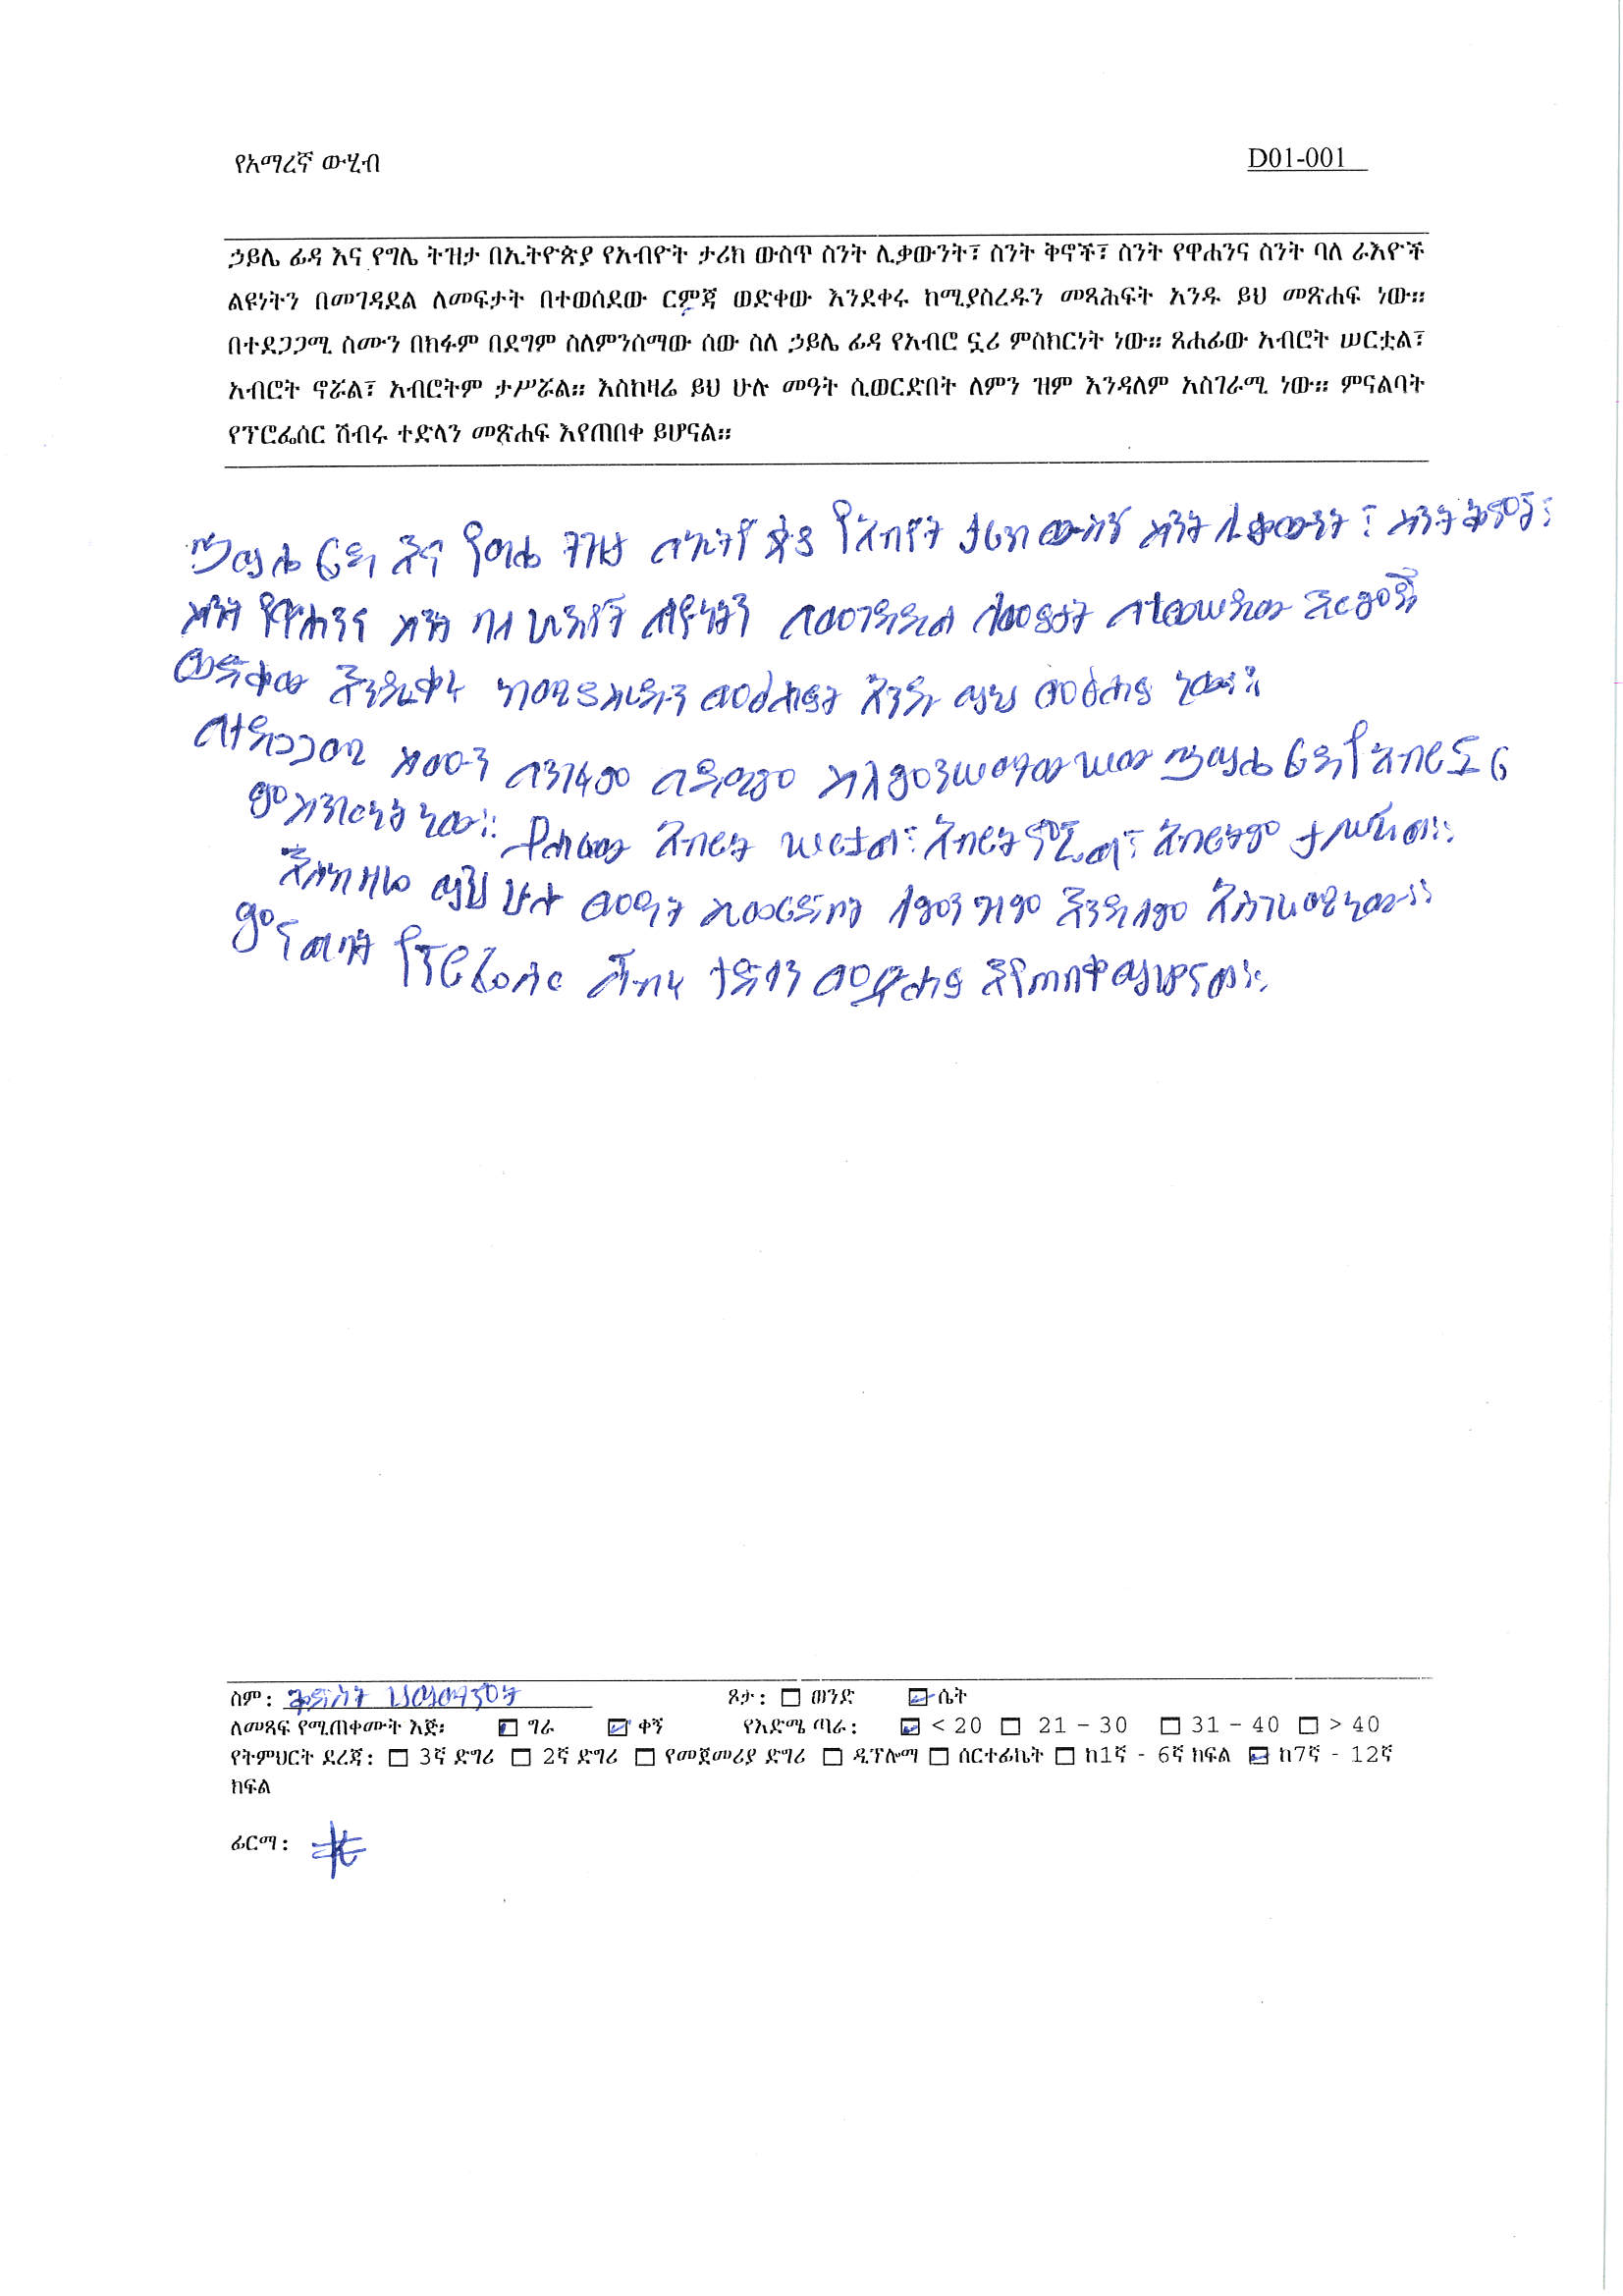 የአማረኛ ውሂብ D01-001
ኃይሌ ፊዳ እና የግሌ ትዝታ በኢትዮጵያ የአብዮት ታሪክ ውስጥ ስንት ሊቃውንት፣ ስንት ቅኖች፣ ስንት የዋሐንና ስንት ባለ ራእዮች
ልዩነትን በመገዳደል ለመፍታት በተወሰደው ርምጃ ወድቀው እንደቀሩ ከሚያስረዱን መጻሕፍት አንዱ ይህ መጽሐፍ ነው።
በተደጋጋሚ ስሙን በክፉም በደግም ስለምንሰማው ሰው ስለ ኃይሌ ፊዳ የአብሮ ኗሪ ምስክርነት ነው። ጸሐፊው አብሮት ሠርቷል፣
አብሮት ኖሯል፣ አብሮትም ታሥሯል። እስከዛሬ ይህ ሁሉ መዓት ሲወርድበት ለምን ዝም እንዳለም አስገራሚ ነው። ምናልባት
የፕሮፌሰር ሽብሩ ተድላን መጽሐፍ እየጠበቀ ይሆናል።
ኃይሌ ፊዳ እና የግሌ ትዝታ በኢትዮጵያ የአብዮት ታሪክ ውስጥ ስንት ሊቃውንት፣ ስንት ቅኖች፣
ስንት የዋሐንና ስንት ባለ ራእዮች ልዩነትን በመገዳደል ለመፍታት በተወሠደው እርምጃ
ወድቀው እንደቀሩ ከሚያስረዱን መፅሐፍት አንዱ ይህ መፅሐፍ ነው።
በተደጋጋሚ ስሙን በክፉም በደግም ስለምንሠማው ሠው ኃይሌ ፊዳ የአብሮ ኗሪ
ምስክርነት ነው። ፀሐፊው አብሮት ሠርቷል፣ አብሮት ኖሯል፣ አብሮትም ታሥሯል።
እስከዛሬ ይህ ሁሉ መዓት ሲወርድበት ለምን ዝም እንዳለም አስገራሚ ነው።
ምናልባት የፕሮፌሰር ሽብሩ ተድላን መጽሐፍ እየጠበቀ ይሆናል።
ስም: ቅድስት ሀይማኖት ጾታ: ወንድ ሴት
ለመጻፍ የሚጠቀሙት እጅ: ግራ ቀኝ የእድሜ ጣራ: < 20 21 – 30 31 – 40 > 40
የትምህርት ደረጃ: 3ኛ ድግሪ 2ኛ ድግሪ የመጀመሪያ ድግሪ ዲፕሎማ ሰርተፊኬት ከ1ኛ - 6ኛ ክፍል ከ7ኛ - 12ኛ
ክፍል
ፊርማ: